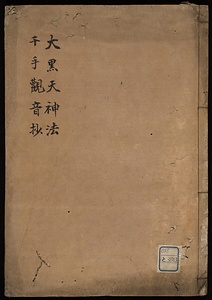 大黒天神法
千手觀音抄